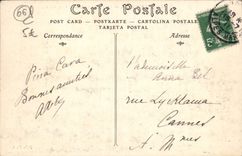 06
5€
Carte Postale
POST CARD — POSTKARTE — CARTOLINA POSTALE
TARJETA POSTAL
Correspondance
Adresse
Pina Cara
Bonnes amitiés
Mademoiselle
Anna
rue Lycklama
Cannes
A. Mmes